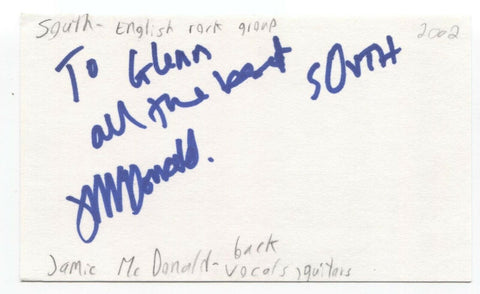 South - English rock group
2002
To Glenn
all the best
SOUTH
JMcDonald.
Jamie McDonald - back
vocals, guitars